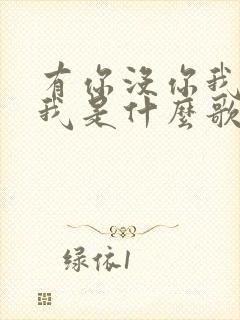 有你没你我
我是什麼歌
绿依1